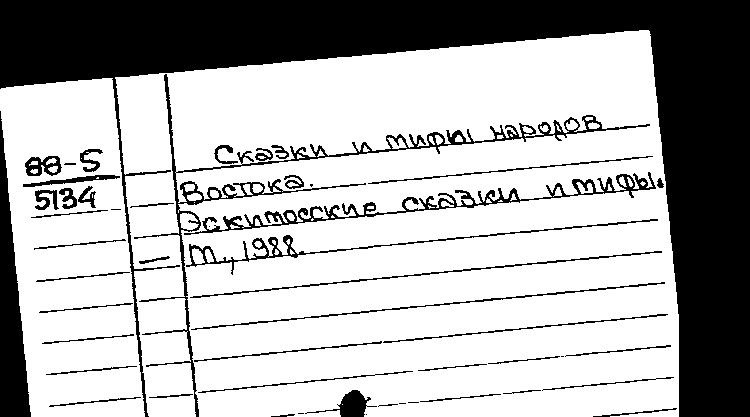 88-5
5134
Сказки и мифы народов
Востока.
Эскимосские сказки и мифы.
— М., 1988.